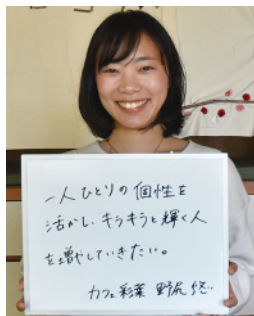 一人ひとりの個性を
活かし、キラキラと輝く人
を増やしていきたい。
カフェ彩葉 野尻 悠